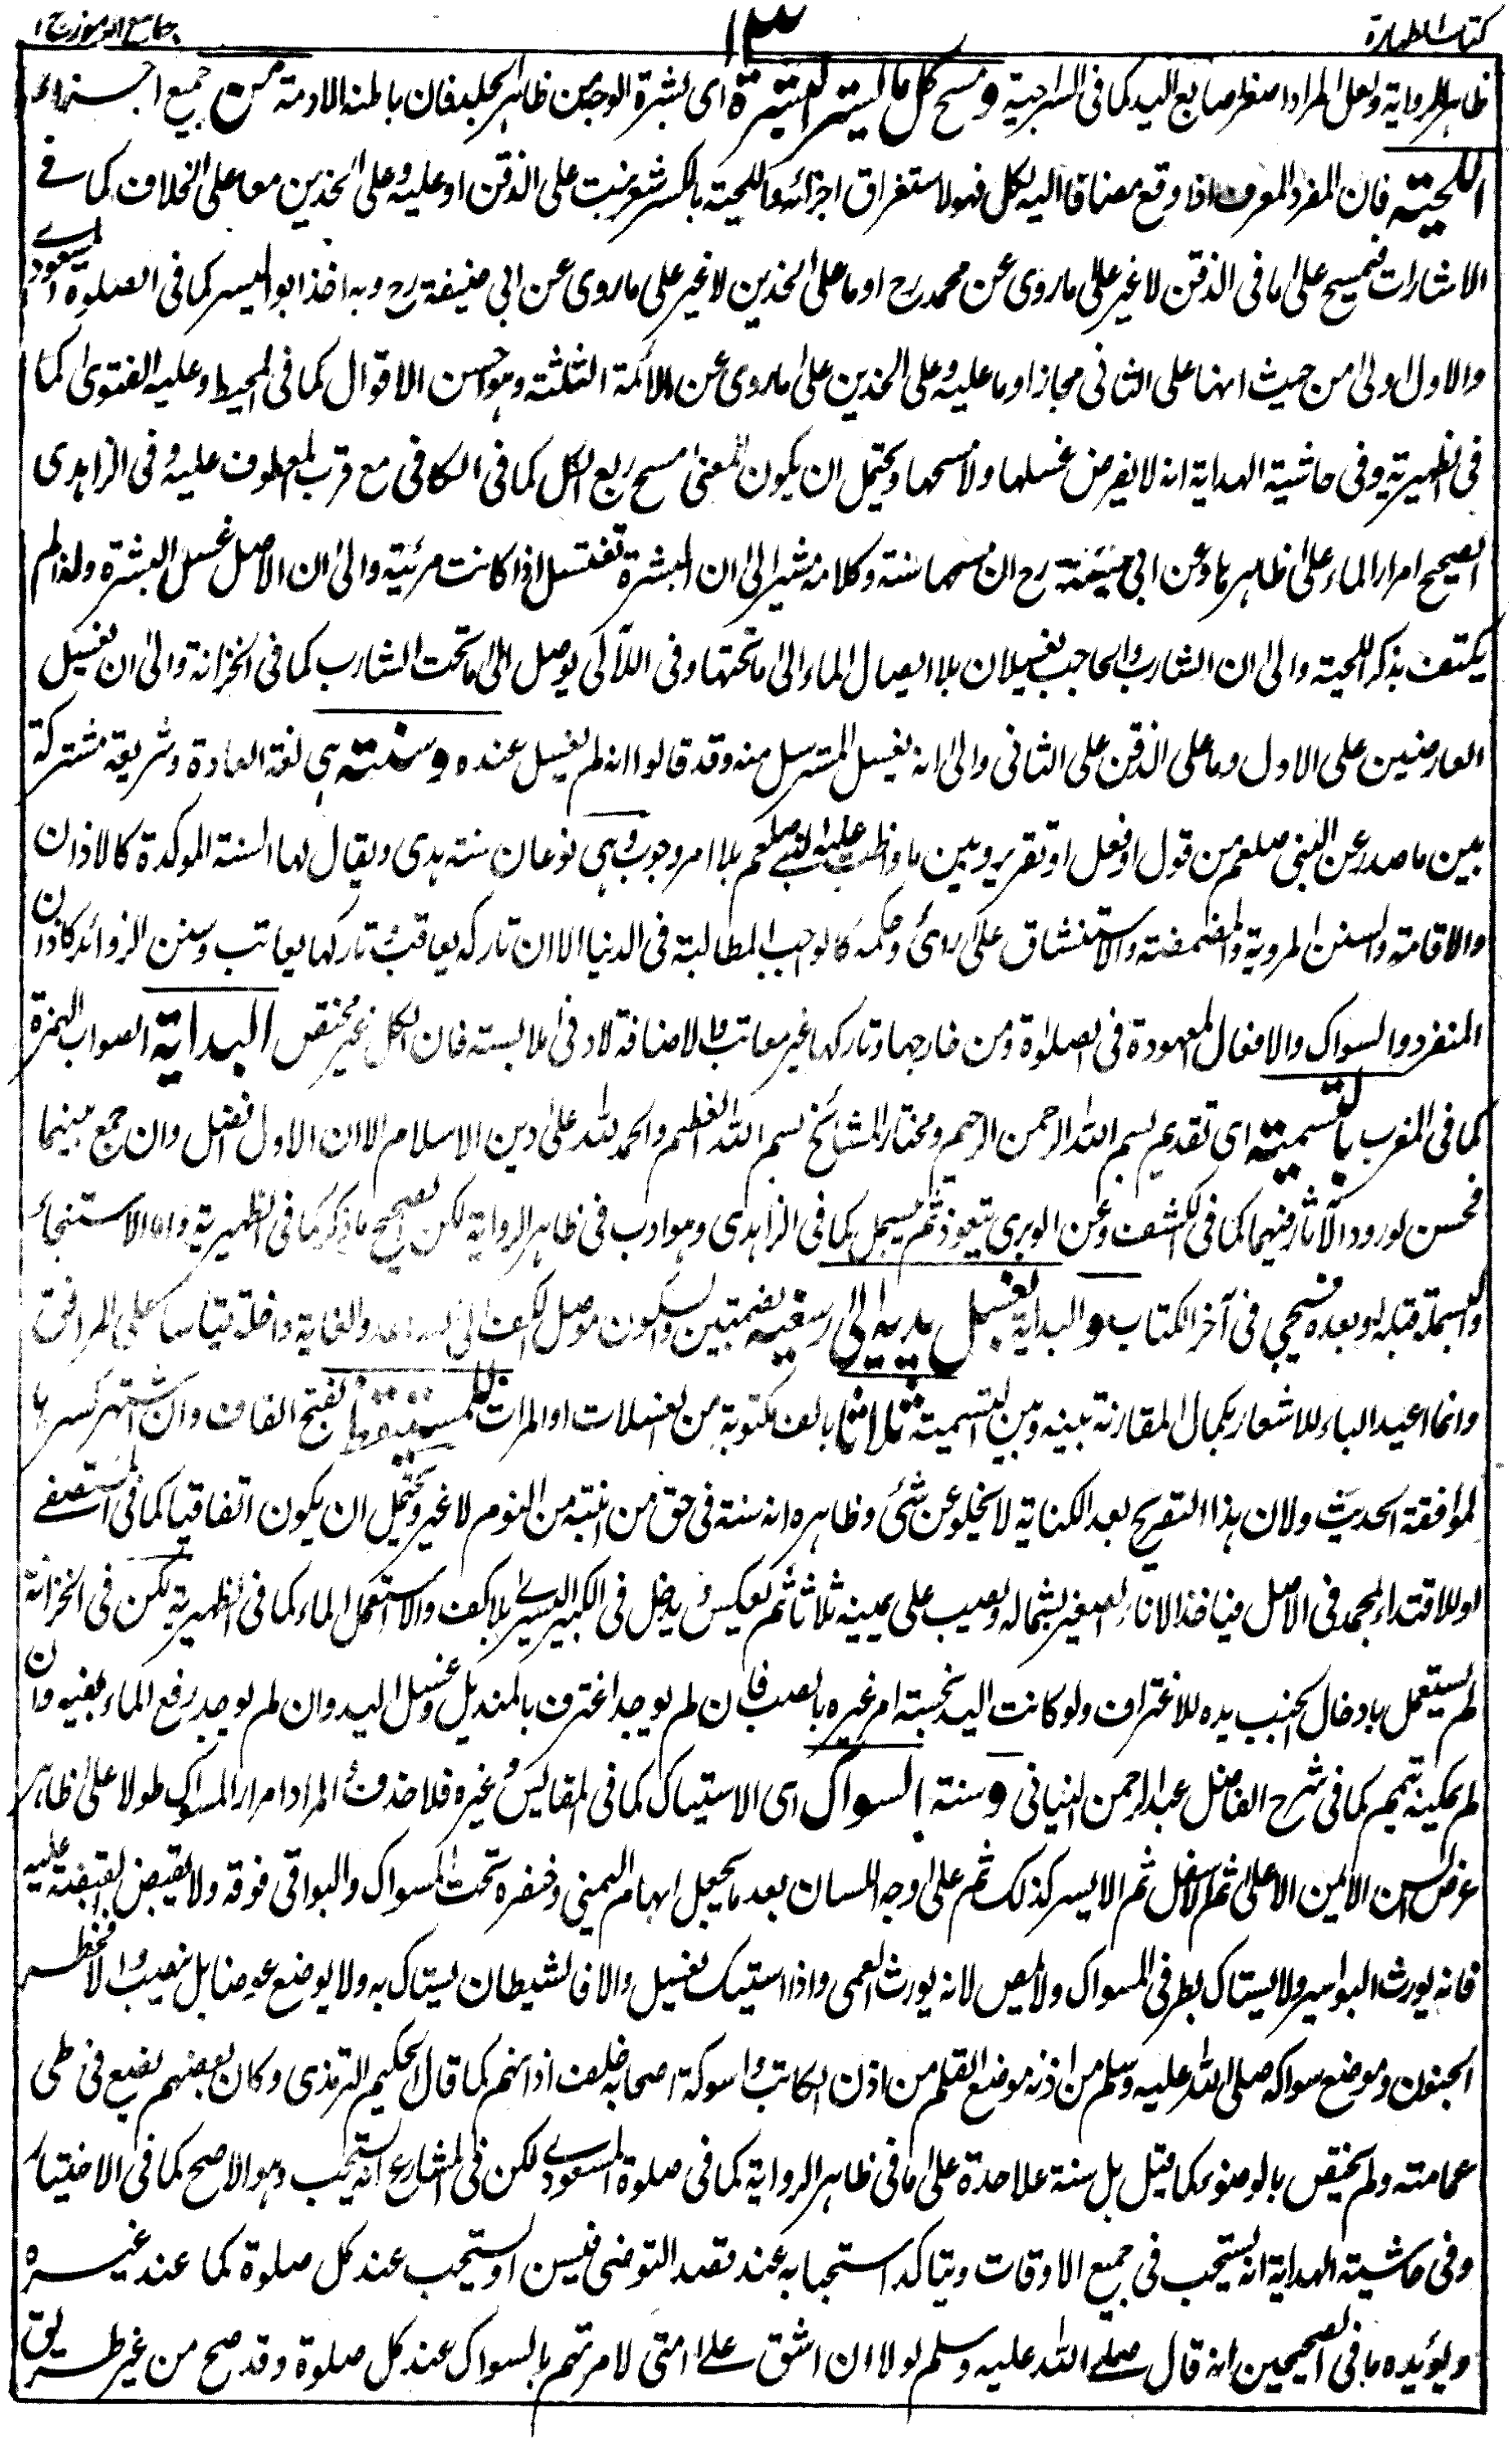 كتاب الطهارة
١٣
جامع الرموز ج ١
ظاهر الرواية ولعل المراد اصغر اصابع اليد كما فى السراجية ومسح كل ما يستر البشرة اى بشرة الوجه من ظاهر الجلد فان باطنه الادمة من جميع اجزاء
اللحية فان المفرد المعرف اذا وقع مضافا اليه لكل فهو لاستغراق اجزائه واللحية بالكسر شعر ينبت على الذقن او عليه وعلى الخدين معا على الخلاف كما فے
الاشارات فيمسح على ما فى الذقن لا غير على ما روى عن محمد رح او ما على الخدين لا غير على ما روى عن ابى حنيفة رح وبه اخذ ابو اليسر كما فى الصلوة المسعودے
والاول اولى من حيث انها على الثانى مجاز او ما عليه وعلى الخدين على ما روى عن الائمة الثلثة وهو احسن الاقوال كما فى المحيط وعليه الفتوى كما
فى الظهيرية وفى حاشية الهداية انه لا يفرض غسلها ولا مسحها ويحتمل ان يكون المعنى مسح ربع الكل كما فى الكافى مع قرب المعطوف عليه وفى الزاهدى
الصحيح امرار الماء على ظاهرها وعن ابى حنيفة رح ان مسحها سنة وكلامه مشير الى ان البشرة تغتسل اذا كانت مرئية والى ان الاصل غسل البشرة ولذا لم
يكتف بذكر اللحية والى ان الشارب والحاجب يغسلان بلا ايصال الماء الى ما تحتها وفى اللآلى يوصل الى ما تحت الشارب كما فى الخزانة والى ان يغسل
العارضين على الاول وما على الذقن على الثانى والى انه يغسل المسترسل منه وقد قالوا انه لم يغسل عنده وسنته هى لغة العادة وشريعة مشتركة
بين ما صدر عن النبى صلعم من قول او فعل او تقرير وبين ما واظب عليه النبے صلعم بلا امر وجوب وهى نوعان سنة هدى ويقال لها السنة الموكدة كالاذان
والاقامة والسنن المروية والمضمضة والاستنشاق على رائ وحكمه كالوجب المطالبة فى الدنيا الا ان تاركه يعاقب وتاركها يعاتب وسنن الزوائد كاذان
المنفرد والسواك والافعال المعهودة فى الصلوة ومن خارجها وتاركها غير معاتب والاضافة لادنى ملابسة فان الكل غير مختص البداية الصواب الهمزة
كما فى المغرب بالتسمية اى تقديم بسم الله الرحمن الرحيم ومختار المشائخ بسم الله العظيم والحمد لله على دين الاسلام الا ان الاول افضل وان جمع بينهما
فحسن لورود الآثار فيهما كما فى الكشف وعن الوبرى يتعوذ ثم يبسمل كما فى الزاهدى وهو ادب فى ظاهر الرواية لكن الصحيح ما ذكر كما فى الظهيرية واما الاستنجاء
والبسملة قبله او بعده فيجئ فى آخر الكتاب والبداية بغسل يديه الى رسغيه بضمتين والسكون موصل الكف الى والغاية داخلة قياسا على المرافق
وانما اعيد الباء للاشعار بكمال المقارنة بينه وبين التسمية ثلاثا بالف مكتوبة من الغسلات او المرات للمستيقظ بفتح القاف وان اشتهر كسرها
لموافقة الحديث ولان هذا التصريح بعد الكناية لا يخلو عن شئ وظاهره انه سنة فى حق من انتبه من النوم لا غير ويحتمل ان يكون اتفاقيا كما فى المستصفے
او للاقتداء بمحمد فى الاصل فياخذ الاناء الصغير بشماله ويصب على يمينه ثلاثا ثم يعكس ويدخل فى الكبير اليسرے بلا كف والا استعمل الماء كما فى الظهيرية لكن فى الخزانة
لم يستعمل بادخال الجنب يده للاغتراف ولو كانت اليد نجسة امر غيره بالصب فان لم يوجد اغترف بالمنديل وغسل اليد وان لم يوجد رفع الماء بفيه وان
لم يمكنه تيمم كما فى شرح الفاضل عبد الرحمن النيانى وسنة السواك اى الاستياك كما فى المقاييس وغيره فلا حذف المراد امرار المسواك طولا على ظاهر
عرض السن الايمن الاعلى ثم الاسفل ثم الايسر كذلك ثم على وجه اللسان بعد ما يجعل ابهام اليمنى وخنصره تحت المسواك والبواقى فوقه ولا يقبض القبضة عليه
فانه يورث البواسير ولا يستاك بطرفى المسواك ولا يمص لانه يورث العمى واذا استيك يغسل والا فالشيطان يستاك به ولا يوضع عرضا بل ينصب والا فخطر
الجنون وموضع سواكه صلى الله عليه وسلم من اذنه موضع القلم من اذن الكاتب واسوكة اصحابه خلف اذانهم كما قال الحكيم الترمذى وكان بعضهم يضع فى طى
عمامته ولم يختص بالوضوء كما قيل بل سنة علاحدة على ما فى ظاهر الرواية كما فى صلوة المسعودے لكن فى المشارع انه يستحب وهو الاصح كما فى الاختيار
وفى حاشية الهداية انه يستحب فى جميع الاوقات ويتاكد استحبابه عند قصد التوضى فيسن او يستحب عند كل صلوة كما عند غيره
ويؤيده ما فى الصحيحين انه قال صلے الله عليه وسلم لولا ان اشق علے امتى لامرتهم بالسواك عند كل صلوة وقد صح من غير طريق